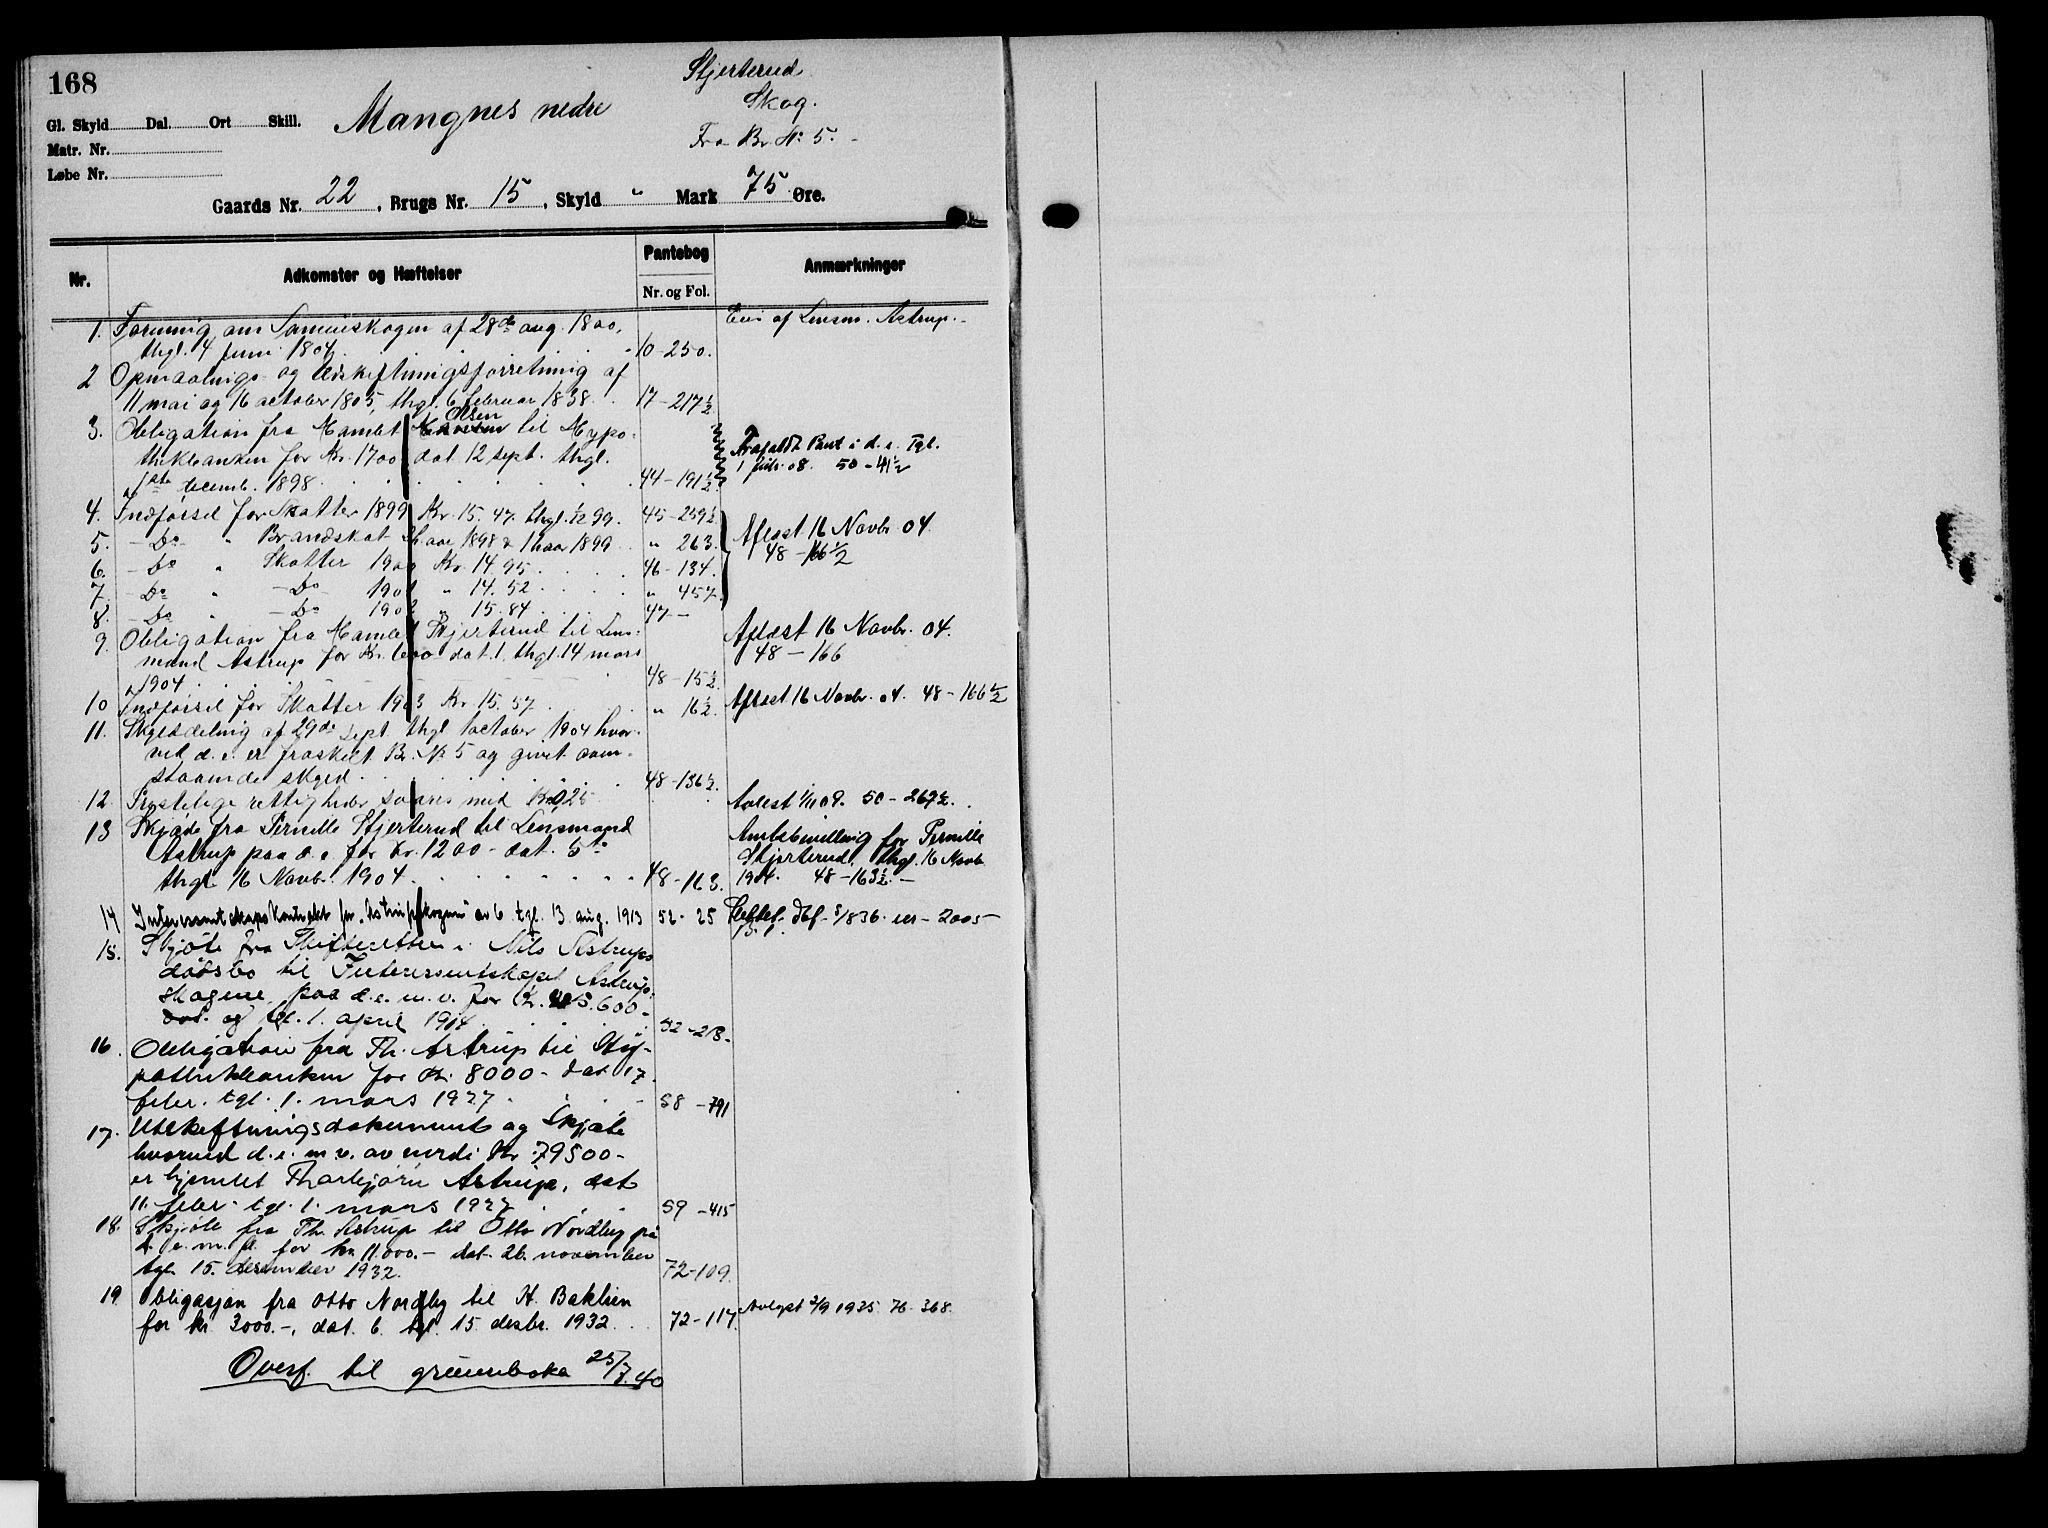 168
Gl. Skyld Dal. Ort Skill.
Matr. Nr.
Løbe Nr.
Mangnes nedre
Stjerterud
Skog.
Fra Br. No 5.
Gaards Nr. 22, Brugs Nr. 15, Skyld " Mark 75 Øre.
Nr. Adkomster og Hæftelser Pantebog Anmærkninger
Nr. og Fol.
Eies af Lensm. Astrup.
1. Forening om Sameieskogen af 28de aug. 1800,
thgl. 4 juni 1804. 10-250.
2 Opmaalings- og Udskiftningsforretning af
11 mai og 16 october 1805, thgl. 6 februar 1838. 17-217½
3. Obligation fra Hamlet Olsen til Hypo-
thekbanken for Kr. 1700 dat 12 sept. thgl. Frafaldt Pant i d. e. Tgl.
1ste decemb. 1898. 44-191½. 1 febr. 08. 50-41½
4. Indførsel for Skatter 1899 Kr. 15.47. thgl. 99. 45-259½
5. - Do - " Brandskat 1898 & 1899 " 263. Aflæst 16 Novbr. 04.
48-166½
6. - Do " Skatter 1900 Kr. 14.95. 46-134.
7. - Do " - Do - 1901 " 14.52. " 457.
8. - Do " - Do 1902 " 15.84. 47-
9. Obligation fra Hamlet Stjerterud til Lens- Aflæst 16 Novbr. 04.
mand Astrup for Kr. dat. 1. thgl. 14 mars 48-166
1904. 48-15½
10 Indførsel for Skatter 1903 Kr. 15.57. " 16½. Aflæst 16 Novbr. 04. 48-166½
11. Skylddeling af 29de sept. thgl 1 october 1904 hvor-
ved d. e. er fraskilt Br. No 5 og givet oven-
staaende skyld. 48-136½.
12. Prestelige rettigheder svares med Kr. 0,25 Avlest 09. 50-269½.
13 Skjøde fra Pernille Stjerterud til Lensmand Amtsbevilling for Pernille
Astrup paa d. e. for Kr. 1200- dat. 5te Stjerterud, thgl. 16 Novb.
thgl 16 Novbr. 1904. 48-163. 1904. 48-163½.-
14 Interessentskapskontrakt for "Astrupskogene" av 6. tgl. 13. aug. 1913 52-25
15. Skjøte fra Skifteretten i Nils Astrups
dødsbo til Interessentskapet Astrup-
skogene, paa d. e. m. v. for Kr. 600-
dat. og tgl. 1. april 1914. 52-213.
16. Obligation fra Th. Astrup til Hy-
pothekbanken for Kr. 8000- dat 17
febr. tgl. 1. mars 1927. 58-791
17. Utskiftningsdokument og Skjøte
hvorved d. e. m. v. av verdi Kr. 79500-
er hjemlet Thorbjørn Astrup, dat
11. febr. tgl. 1. mars 1927 59-415
18. Skjøte fra Th. Astrup til Otto Nordby på
d. e. m. fl. for kr. 11.000.- dat. 26. november
tgl. 15. desember 1932. 72-109.
19 Obligasjon fra Otto Nordby til H. Baklien
for kr. 3000.-, dat. 6. tgl. 15. desbr. 1932. 72-117. Avlyst 2/9 1935. 76-368.
Overf. til grunnboka 25/7.40